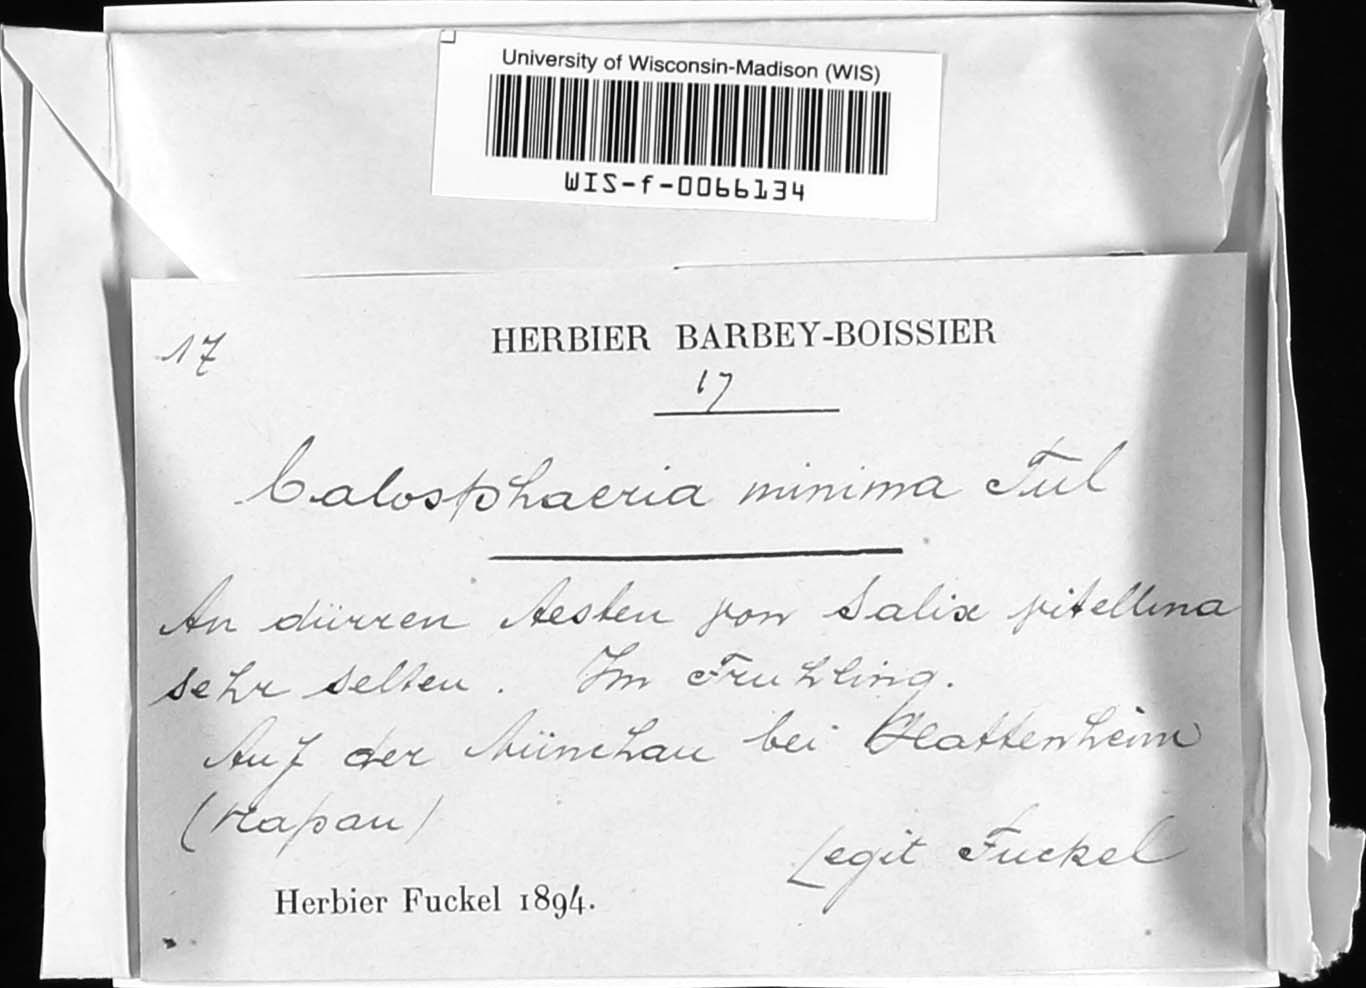 University of Wisconsin-Madison (WIS)
WIS-f-0066134
17
HERBIER BARBEY-BOISSIER
17
Calosphaeria minima Tul
An dürren Aesten von Salix vitellina
sehr selten. Im Fruhling.
Auf der Münchau bei Hattenheim
(Napau)
Legit Fuckel
Herbier Fuckel 1894.